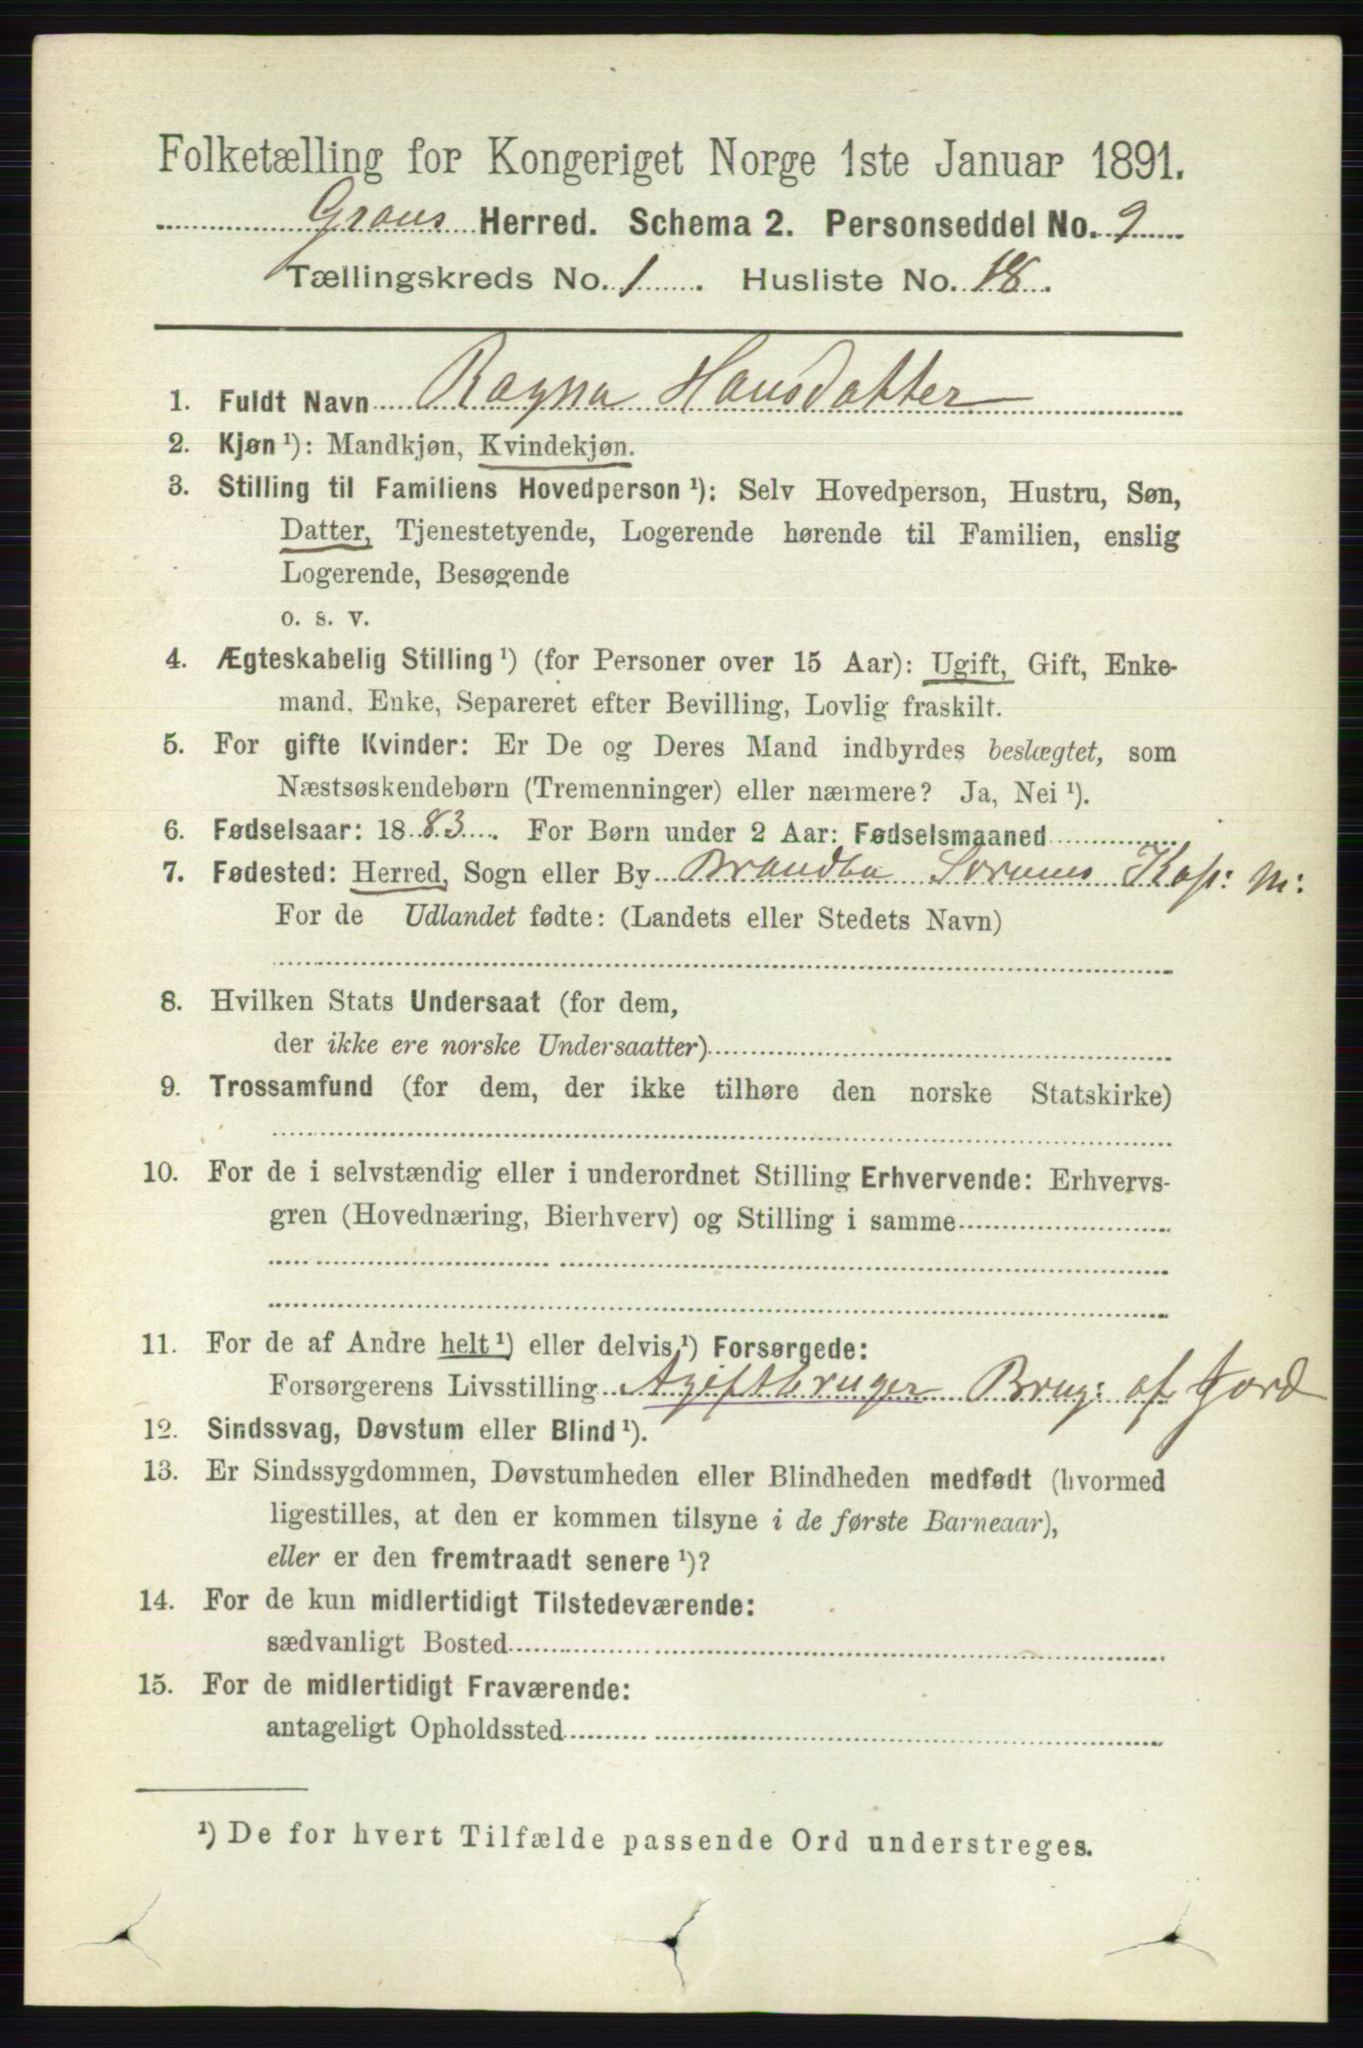 Folketælling for Kongeriget Norge 1ste Januar 1891.
Grans Herred. Schema 2. Personseddel No. 9
Tællingskreds No. 1. Husliste No. 18.
1. Fuldt Navn Ragna Hansdatter
2. Kjøn ¹): Mandkjøn, Kvindekjøn.
3. Stilling til Familiens Hovedperson ¹): Selv Hovedperson, Hustru, Søn,
Datter, Tjenestetyende, Logerende hørende til Familien, enslig
Logerende, Besøgende
o. s. v.
4. Ægteskabelig Stilling ¹) (for Personer over 15 Aar): Ugift, Gift, Enke-
mand, Enke, Separeret efter Bevilling, Lovlig fraskilt.
5. For gifte Kvinder: Er De og Deres Mand indbyrdes beslægtet, som
Næstsøskendebørn (Tremenninger) eller nærmere? Ja, Nei ¹).
6. Fødselsaar: 1883. For Børn under 2 Aar: Fødselsmaaned
7. Fødested: Herred, Sogn eller By Brandbu Sørums Kap: M:
For de Udlandet fødte: (Landets eller Stedets Navn)
8. Hvilken Stats Undersaat (for dem,
der ikke ere norske Undersaatter)
9. Trossamfund (for dem, der ikke tilhøre den norske Statskirke)
10. For de i selvstændig eller i underordnet Stilling Erhvervende: Erhvervs-
gren (Hovednæring, Bierhverv) og Stilling i samme
11. For de af Andre helt ¹) eller delvis ¹) Forsørgede:
Forsørgerens Livsstilling Agiftbruger Brug: af Jord
12. Sindssvag, Døvstum eller Blind ¹).
13. Er Sindssygdommen, Døvstumheden eller Blindheden medfødt (hvormed
ligestilles, at den er kommen tilsyne i de første Barneaar),
eller er den fremtraadt senere ¹)?
14. For de kun midlertidigt Tilstedeværende:
sædvanligt Bosted
15. For de midlertidigt Fraværende:
antageligt Opholdssted
¹) De for hvert Tilfælde passende Ord understreges.